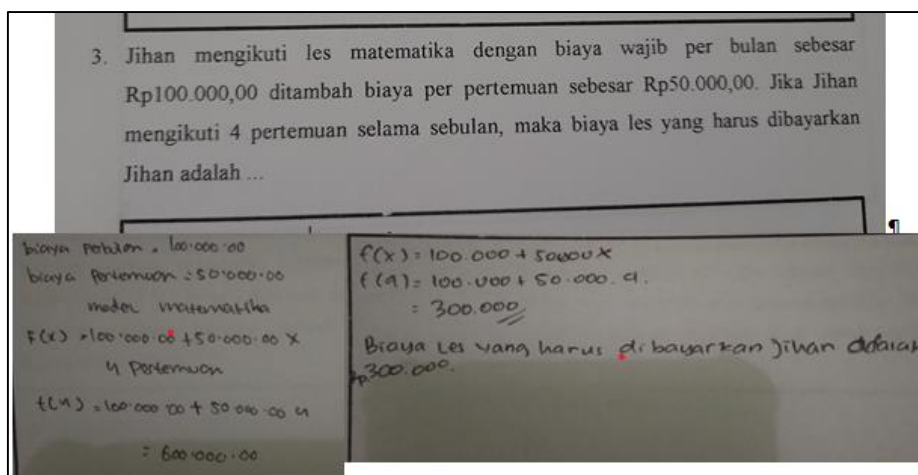 3. Jihan mengikuti les matematika dengan biaya wajib per bulan sebesar
Rp100.000,00 ditambah biaya per pertemuan sebesar Rp50.000,00. Jika Jihan
mengikuti 4 pertemuan selama sebulan, maka biaya les yang harus dibayarkan
Jihan adalah ...
biaya perbulan = 100.000.00
biaya Pertemuan = 50.000.00
model matematika
F(x) = 100.000.00 + 50.000.00 x
4 Pertemuan
f(4) = 100.000.00 + 50.000.00 4
= 600.000.00
f(x) = 100.000 + 50000 x
f(4) = 100.000 + 50.000. 4.
= 300.000
Biaya Les yang harus dibayarkan Jihan adalah
Rp300.000.
¶